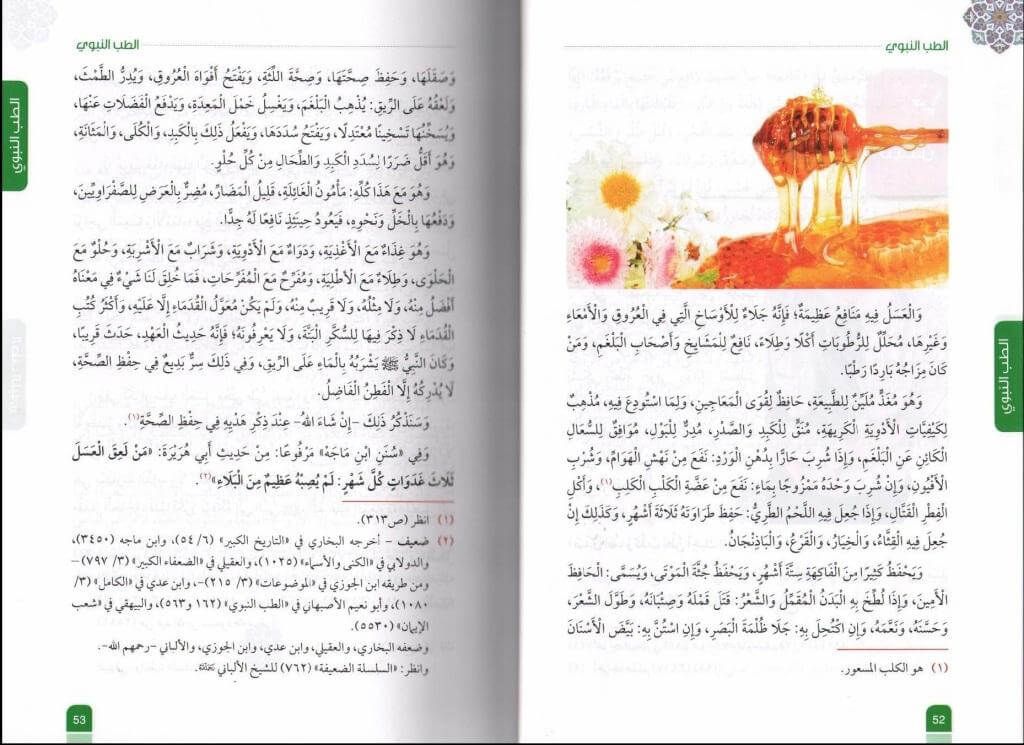 الطب النبوي
وَالْعَسَلُ فِيهِ مَنَافِعُ عَظِيمَةٌ؛ فَإِنَّهُ جَلَاءٌ لِلْأَوْسَاخِ الَّتِي فِي الْعُرُوقِ وَالْأَمْعَاءِ
وَغَيْرِهَا، مُحَلِّلٌ لِلرُّطُوبَاتِ أَكْلًا وَطِلَاءً، نَافِعٌ لِلْمَشَايِخِ وَأَصْحَابِ الْبَلْغَمِ، وَمَنْ
كَانَ مِزَاجُهُ بَارِدًا رَطْبًا.
وَهُوَ مُغَذٍّ مُلَيِّنٌ لِلطَّبِيعَةِ، حَافِظٌ لِقُوَى الْمَعَاجِينِ، وَلِمَا اسْتُودِعَ فِيهِ، مُذْهِبٌ
لِكَيْفِيَّاتِ الْأَدْوِيَةِ الْكَرِيهَةِ، مُنَقٍّ لِلْكَبِدِ وَالصَّدْرِ، مُدِرٌّ لِلْبَوْلِ، مُوَافِقٌ لِلسُّعَالِ
الْكَائِنِ عَنِ الْبَلْغَمِ، وَإِذَا شُرِبَ حَارًّا بِدُهْنِ الْوَرْدِ: نَفَعَ مِنْ نَهْشِ الْهَوَامِّ، وَشُرْبِ
الْأَفْيُونِ، وَإِنْ شُرِبَ وَحْدَهُ مَمْزُوجًا بِمَاءٍ: نَفَعَ مِنْ عَضَّةِ الْكَلْبِ الْكَلِبِ(١)، وَأَكْلِ
الْفِطْرِ الْقَتَّالِ، وَإِذَا جُعِلَ فِيهِ اللَّحْمُ الطَّرِيُّ: حَفِظَ طَرَاوَتَهُ ثَلَاثَةَ أَشْهُرٍ، وَكَذَلِكَ إِنْ
جُعِلَ فِيهِ الْقِثَّاءُ، وَالْخِيَارُ، وَالْقَرْعُ، وَالْبَاذِنْجَانُ.
وَيَحْفَظُ كَثِيرًا مِنَ الْفَاكِهَةِ سِتَّةَ أَشْهُرٍ، وَيَحْفَظُ جُثَّةَ الْمَوْتَى، وَيُسَمَّى: الْحَافِظَ
الْأَمِينَ، وَإِذَا لُطِّخَ بِهِ الْبَدَنُ الْمُقَمَّلُ وَالشَّعْرُ: قَتَلَ قَمْلَهُ وَصِئْبَانَهُ، وَطَوَّلَ الشَّعْرَ،
وَحَسَّنَهُ، وَنَعَّمَهُ، وَإِنِ اكْتُحِلَ بِهِ: جَلَا ظُلْمَةَ الْبَصَرِ، وَإِنِ اسْتُنَّ بِهِ: بَيَّضَ الْأَسْنَانَ
(١) هو الكلب المسعور.
الطب النبوي
52
الطب النبوي
وَصَقَلَهَا، وَحَفِظَ صِحَّتَهَا، وَصِحَّةَ اللِّثَةِ، وَيَفْتَحُ أَفْوَاهَ الْعُرُوقِ، وَيُدِرُّ الطَّمْثَ،
وَلَعْقُهُ عَلَى الرِّيقِ: يُذْهِبُ الْبَلْغَمَ، وَيَغْسِلُ خَمْلَ الْمَعِدَةِ، وَيَدْفَعُ الْفَضَلَاتِ عَنْهَا،
وَيُسَخِّنُهَا تَسْخِينًا مُعْتَدِلًا، وَيَفْتَحُ سُدَدَهَا، وَيَفْعَلُ ذَلِكَ بِالْكَبِدِ، وَالْكُلَى، وَالْمَثَانَةِ،
وَهُوَ أَقَلُّ ضَرَرًا لِسُدَدِ الْكَبِدِ وَالطِّحَالِ مِنْ كُلِّ حُلْوٍ.
وَهُوَ مَعَ هَذَا كُلِّهِ: مَأْمُونُ الْغَائِلَةِ، قَلِيلُ الْمَضَارِّ، مُضِرٌّ بِالْعَرَضِ لِلصَّفْرَاوِيِّينَ،
وَدَفْعُهَا بِالْخَلِّ وَنَحْوِهِ، فَيَعُودُ حِينَئِذٍ نَافِعًا لَهُ جِدًّا.
وَهُوَ غِذَاءٌ مَعَ الْأَغْذِيَةِ، وَدَوَاءٌ مَعَ الْأَدْوِيَةِ، وَشَرَابٌ مَعَ الْأَشْرِبَةِ، وَحُلْوٌ مَعَ
الْحَلْوَى، وَطِلَاءٌ مَعَ الْأَطْلِيَةِ، وَمُفَرِّحٌ مَعَ الْمُفَرِّحَاتِ، فَمَا خُلِقَ لَنَا شَيْءٌ فِي مَعْنَاهُ
أَفْضَلُ مِنْهُ، وَلَا مِثْلُهُ، وَلَا قَرِيبٌ مِنْهُ، وَلَمْ يَكُنْ مُعَوَّلُ الْقُدَمَاءِ إِلَّا عَلَيْهِ، وَأَكْثَرُ كُتُبِ
الْقُدَمَاءِ لَا ذِكْرَ فِيهَا لِلسُّكَّرِ الْبَتَّةَ، وَلَا يَعْرِفُونَهُ؛ فَإِنَّهُ حَدِيثُ الْعَهْدِ، حَدَثَ قَرِيبًا،
وَكَانَ النَّبِيُّ ﷺ يَشْرَبُهُ بِالْمَاءِ عَلَى الرِّيقِ، وَفِي ذَلِكَ سِرٌّ بَدِيعٌ فِي حِفْظِ الصِّحَّةِ،
لَا يُدْرِكُهُ إِلَّا الْفَطِنُ الْفَاضِلُ.
وَسَنَذْكُرُ ذَلِكَ -إِنْ شَاءَ اللهُ- عِنْدَ ذِكْرِ هَدْيِهِ فِي حِفْظِ الصِّحَّةِ(١).
وَفِي «سُنَنِ ابْنِ مَاجَهْ» مَرْفُوعًا: مِنْ حَدِيثِ أَبِي هُرَيْرَةَ: «مَنْ لَعِقَ الْعَسَلَ
ثَلَاثَ غَدَوَاتٍ كُلَّ شَهْرٍ: لَمْ يُصِبْهُ عَظِيمٌ مِنَ الْبَلَاءِ»(٢).
(١) انظر (ص٣١٣).
(٢) ضعيف - أخرجه البخاري في «التاريخ الكبير» (٦/ ٥٤)، وابن ماجه (٣٤٥٠)،
والدولابي في «الكنى والأسماء» (١٠٢٥)، والعقيلي في «الضعفاء الكبير» (٣/ ٧٩٧)-
ومن طريقه ابن الجوزي في «الموضوعات» (٣/ ٢١٥)-، وابن عدي في «الكامل» (٣/
١٠٨٠)، وأبو نعيم الأصبهاني في «الطب النبوي» (١٦٢ و٥٦٣)، والبيهقي في «شعب
الإيمان» (٥٥٣٠).
وضعفه البخاري، والعقيلي، وابن عدي، وابن الجوزي، والألباني -رحمهم الله-.
وانظر: «السلسلة الضعيفة» (٧٦٢) للشيخ الألباني رحمه الله.
الطب النبوي
53